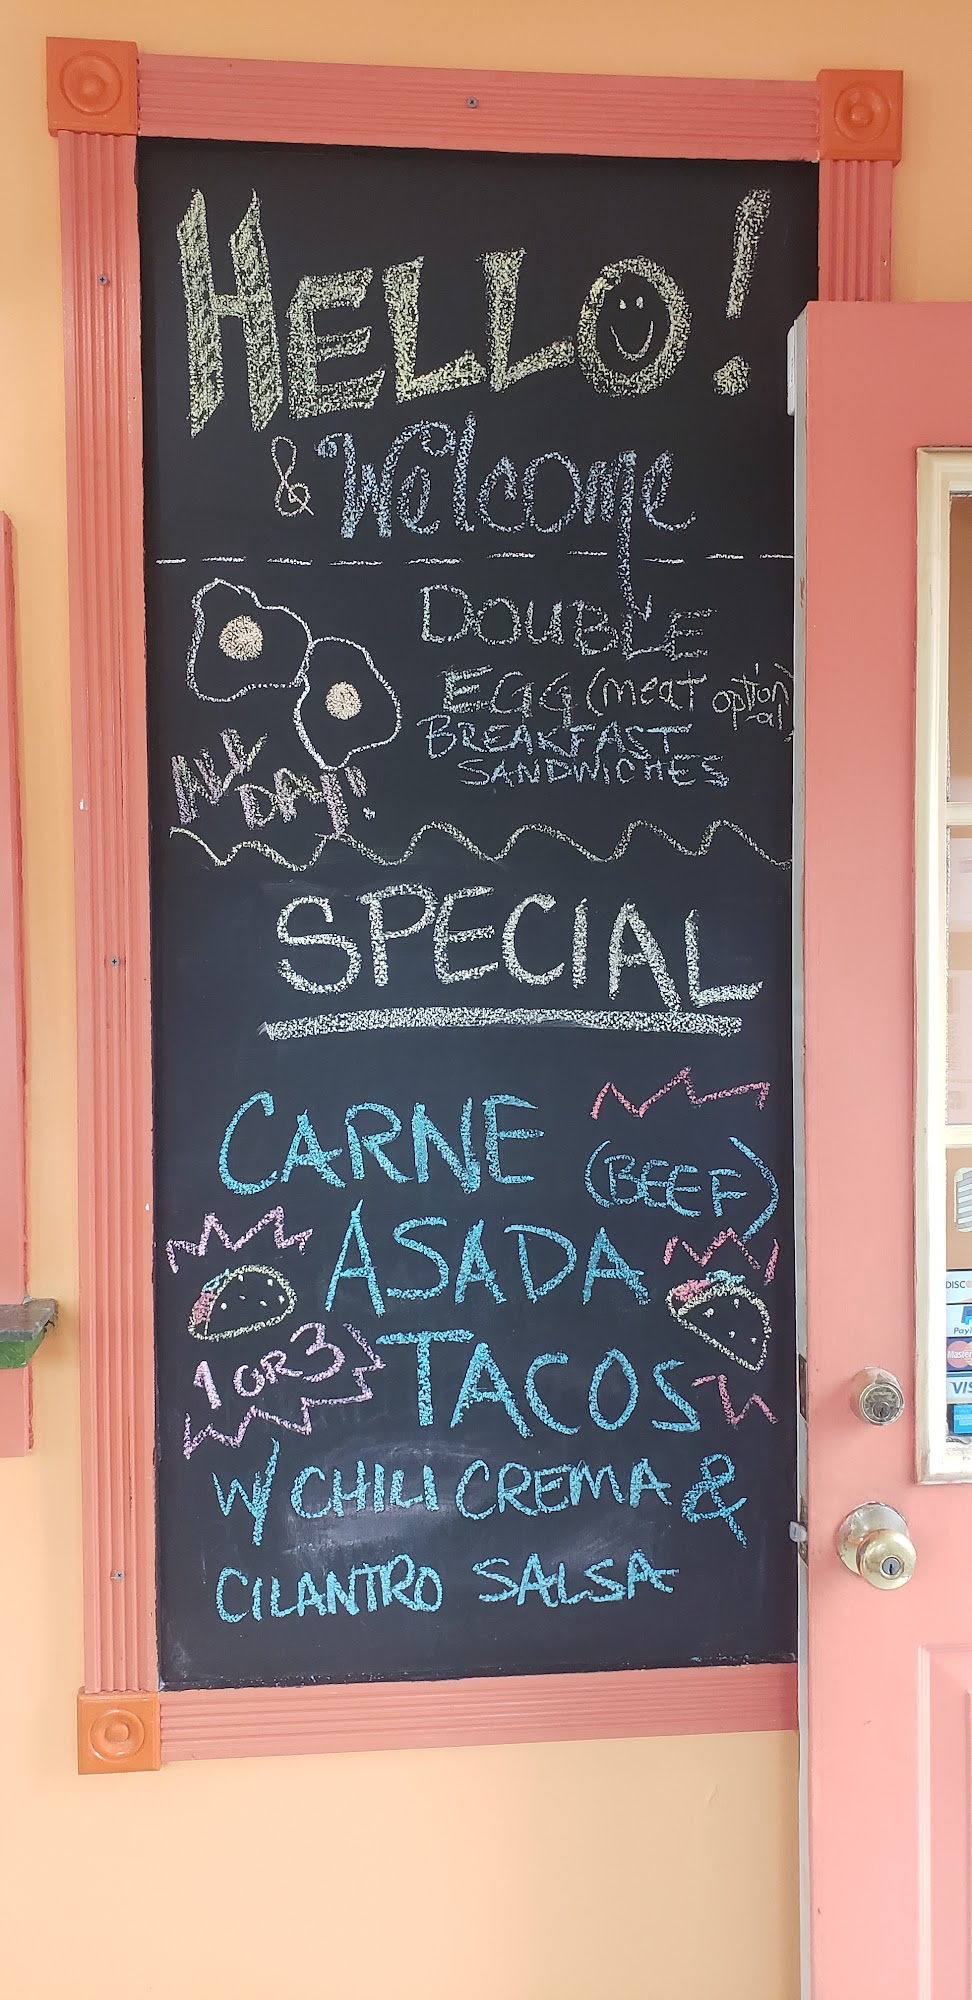 HELLO!
& Welcome
DOUBLE
EGG (meat optional)
BREAKFAST
SANDWICHES
ALL
DAY!
SPECIAL
CARNE
(BEEF)
ASADA
1 OR 3
TACOS
W/ CHILI CREMA &
CILANTRO SALSA
DISC
PayP
Master
VIS